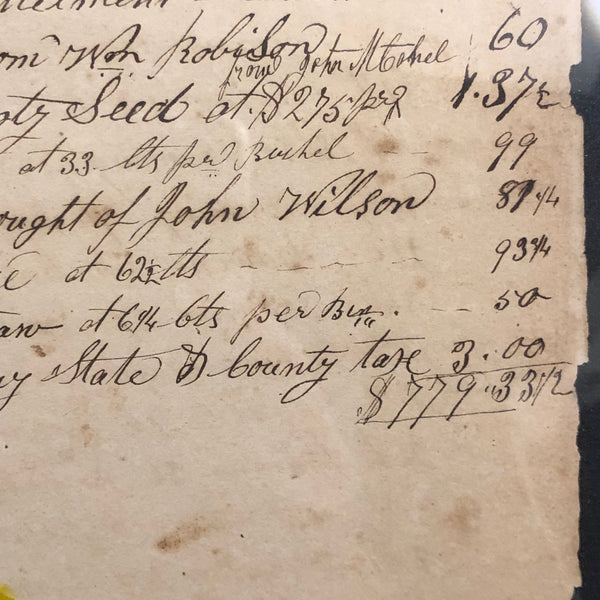 Wm Robison 60
from John
Seed at $275 pr 1.37½
at 33 Cts per Bushel 99
ought of John Wilson 81 1/4
at 62½ Cts 93 3/4
at 6 1/4 Cts per Bun. 50
State & County taxe 3.00
$779.33 1/2